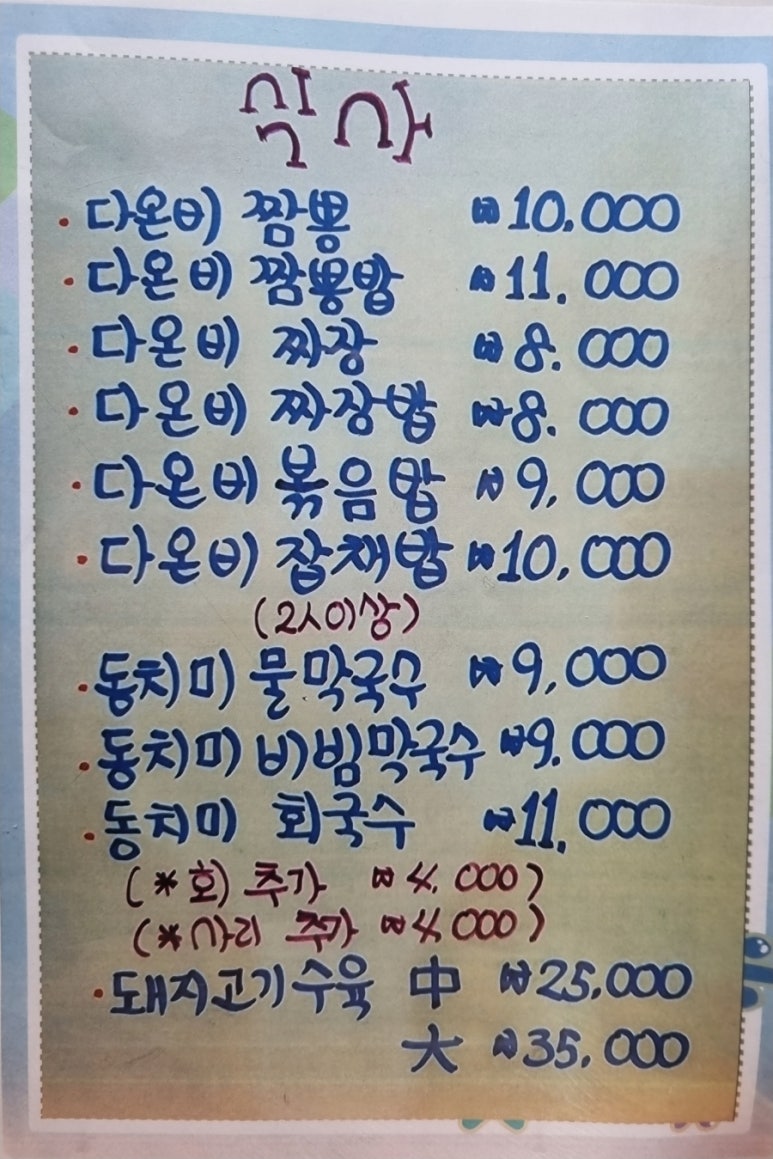 식사
· 다온비 짬뽕 ₩10.000
· 다온비 짬뽕밥 ₩11.000
· 다온비 짜장 ₩8.000
· 다온비 짜장밥 ₩8.000
· 다온비 볶음밥 ₩9,000
· 다온비 잡채밥 ₩10,000
(2人이상)
· 동치미 물막국수 ₩9,000
· 동치미 비빔막국수 ₩9.000
· 동치미 회국수 ₩11,000
(*회 추가 ₩4.000)
(*사리 추가 ₩4.000)
· 돼지고기수육 中 ₩25,000
大 ₩35,000